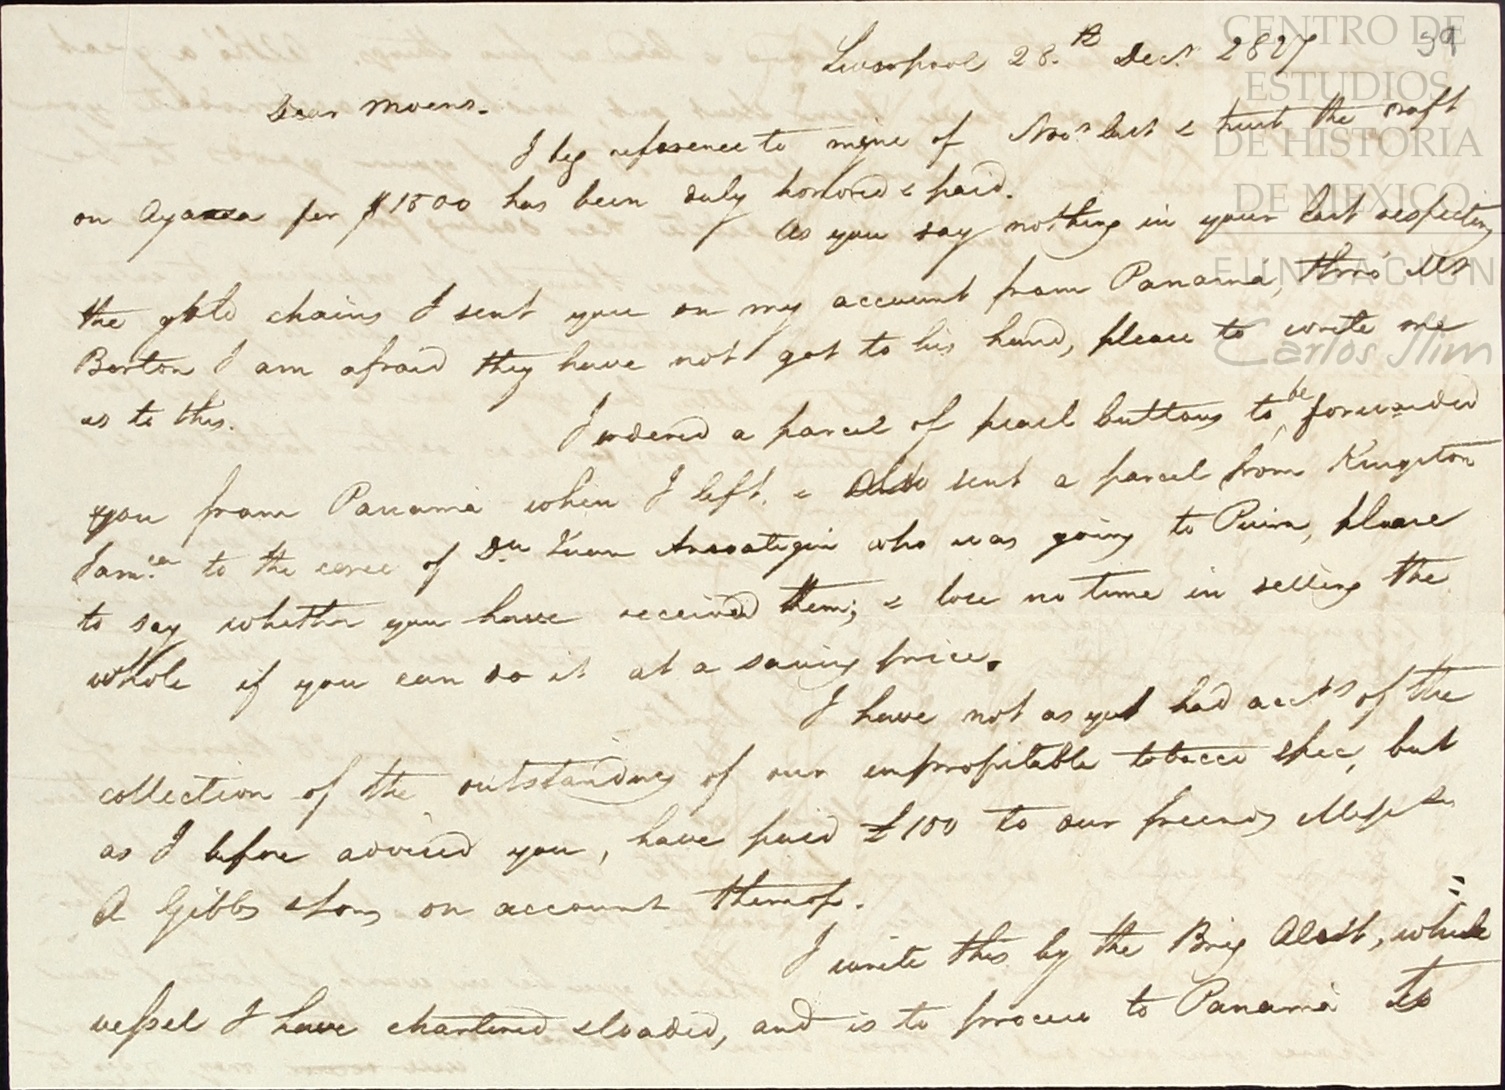 59
Liverpool 28.th Decr. 1827
Dear Moens.
I beg reference to mine of Novr last & trust the draft
on Ayassa for $1800 has been duly honored & paid.
As you say nothing in your last respecting
the gold chains I sent you on my account from Panama, thro' Mr
Barton I am afraid they have not got to his hand, please to write me
as to this.
I ordered a parcel of pearl buttons to be forwarded
you from Panama when I left, & also sent a parcel from Kingston
Jamca to the care of Dn Juan who was going to Piura, please
to say whether you have received them; & lose no time in selling the
whole if you can do it at a saving price.
I have not as yet had accts of the
collection of the outstandings of our unprofitable tobacco spec, but
as I before advised you, have paid £100 to our friends Messrs
A Gibbs & Sons on account thereof.
I write this by the Brig Alert, which
vessel I have chartered & loaded, and is to proceed to Panama to
CENTRO DE
ESTUDIOS
DE HISTORIA
DE MEXICO
FUNDACIÓN
Carlos Slim